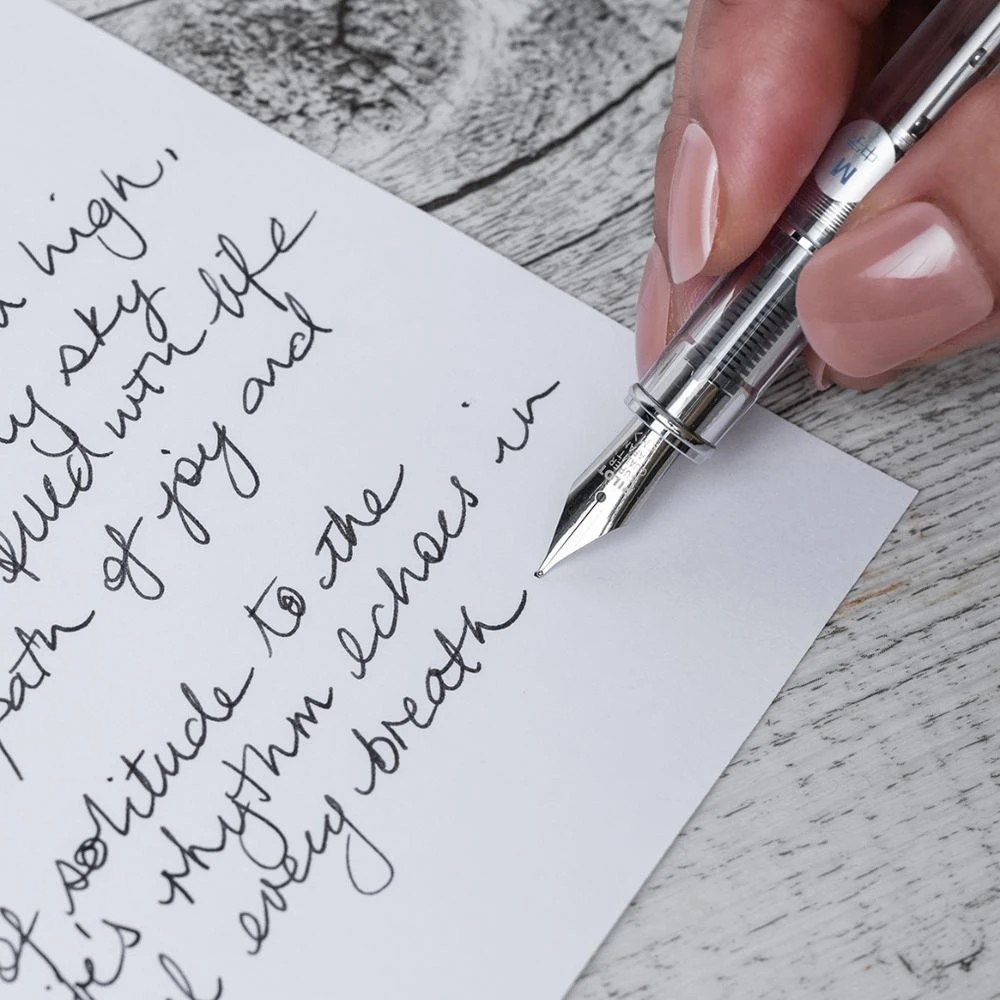 high,
sky
filled with life
path of joy and
of solitude to the
rhythm echoes in
every breath
M